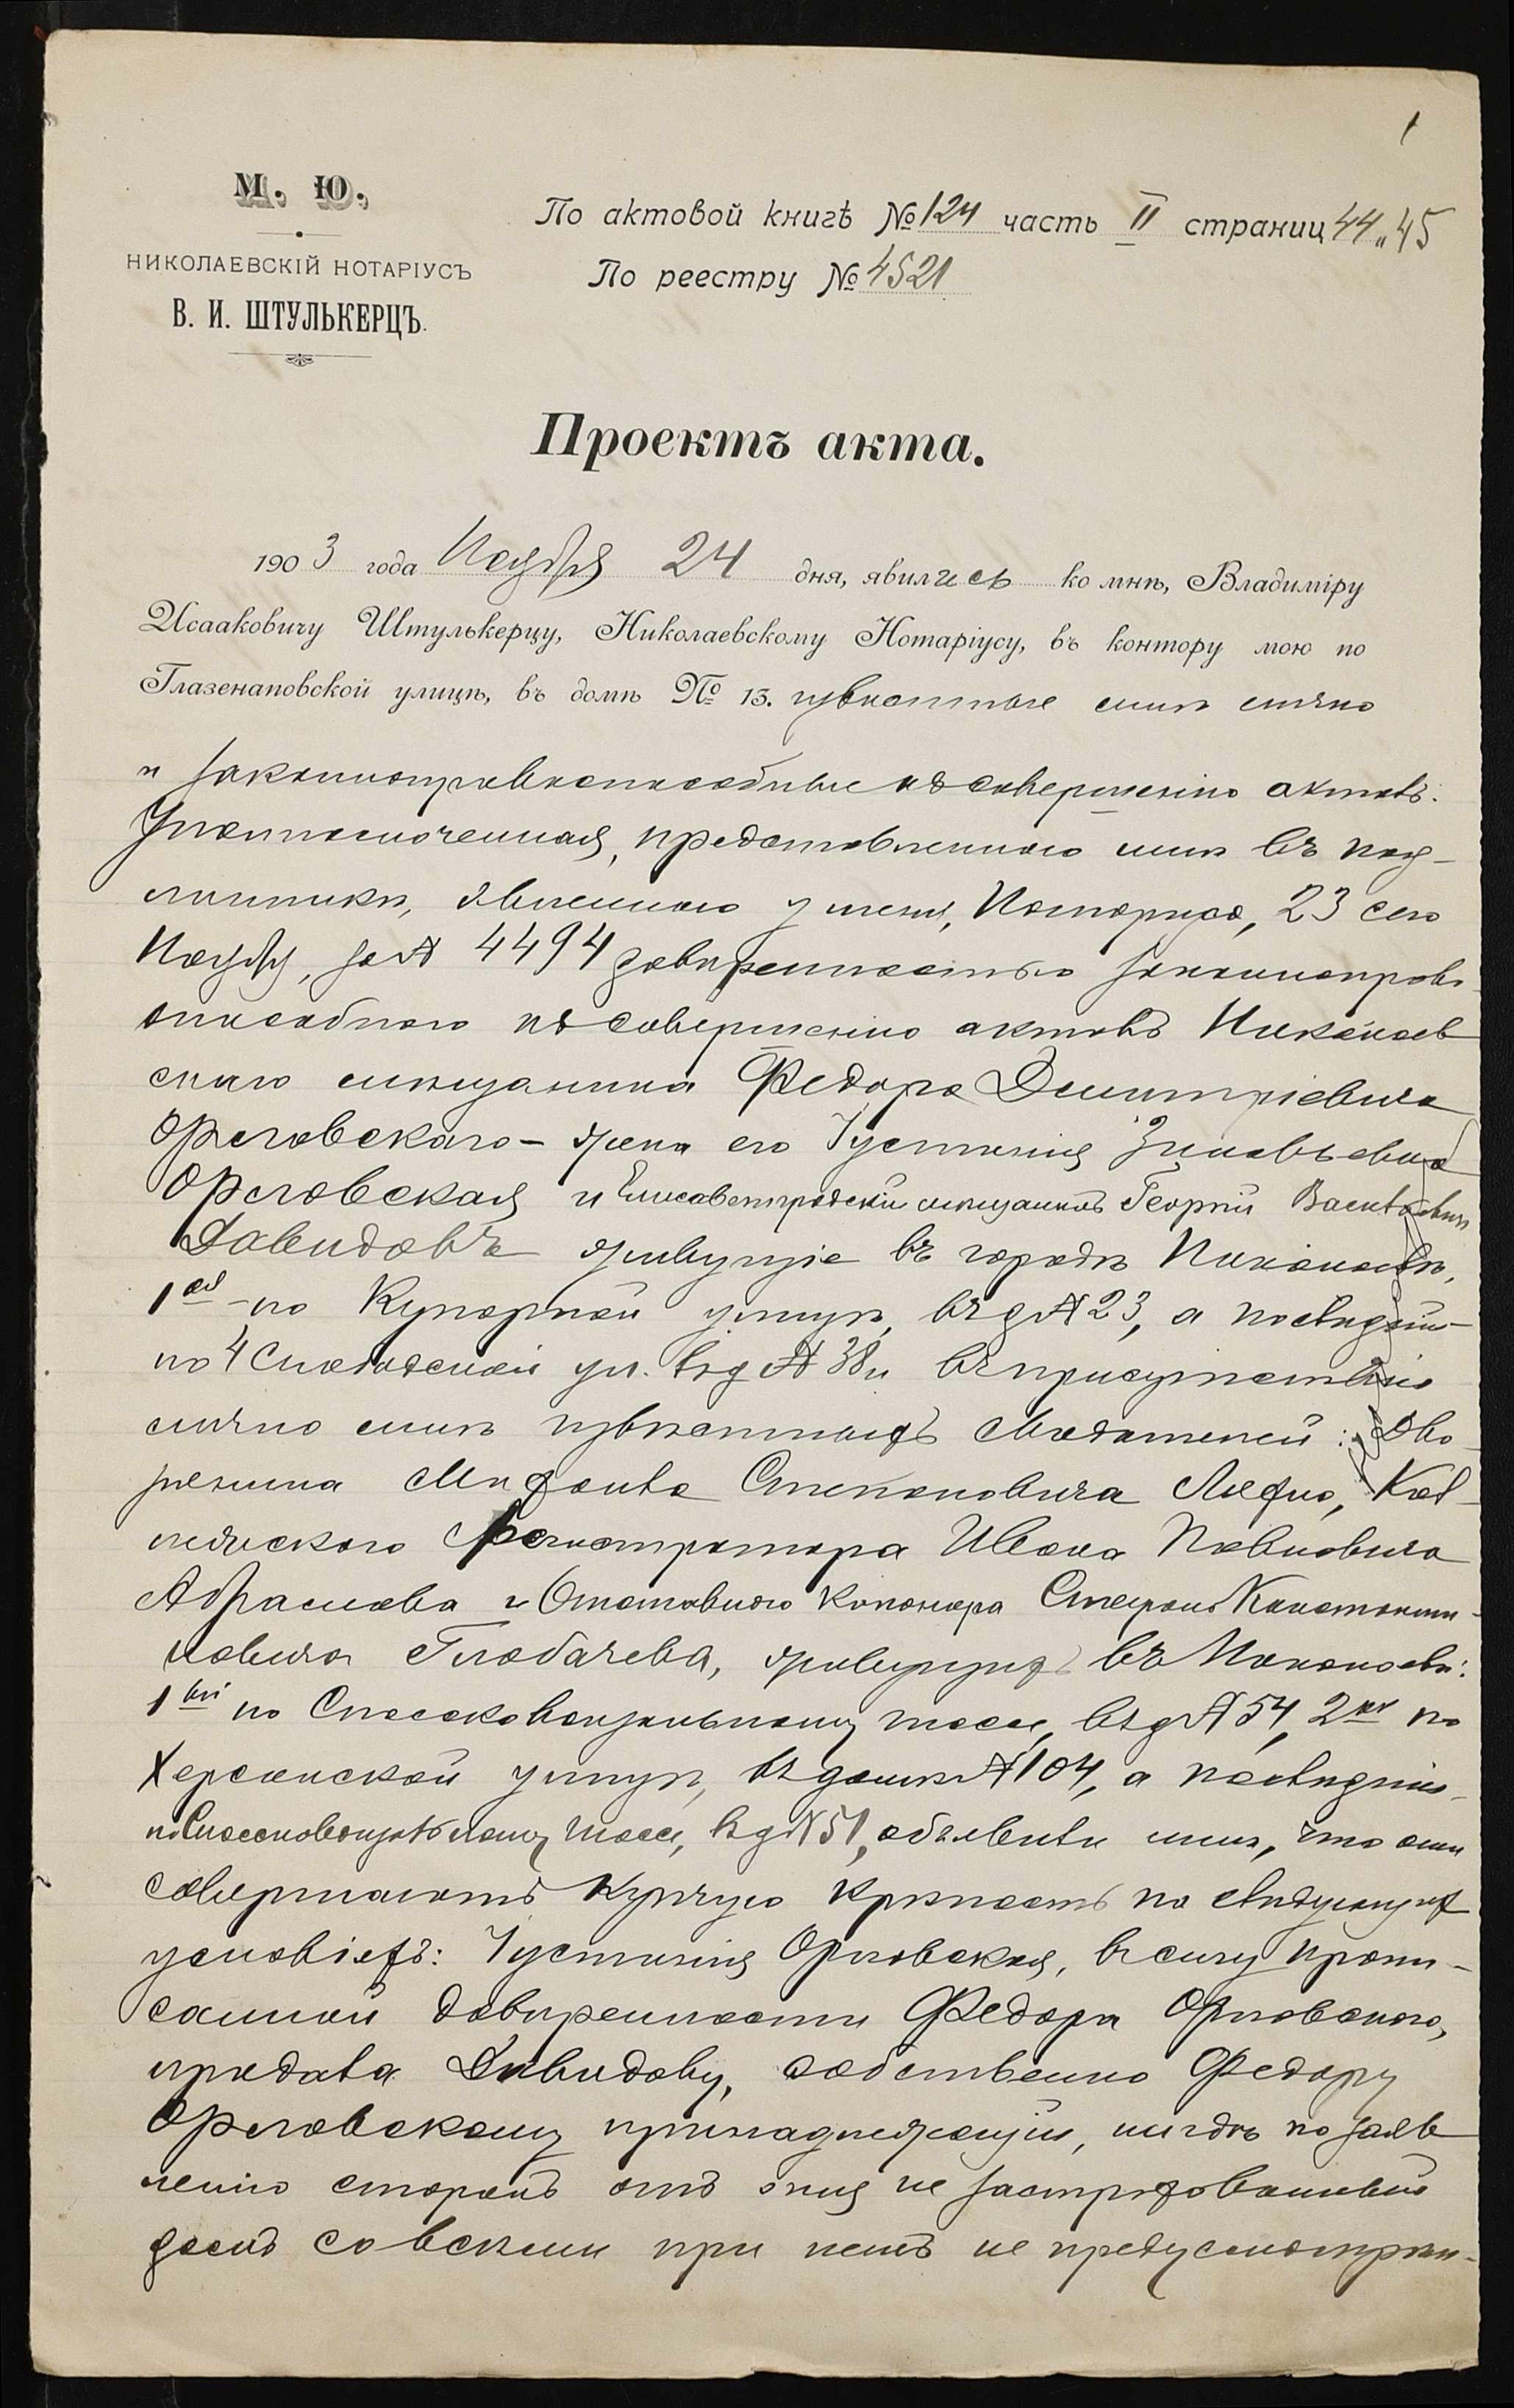 1
М. Ю.
НИКОЛАЕВСКІЙ НОТАРІУСЪ
В. И. ШТУЛЬКЕРЦЪ.
По актовой книгѣ № 124 часть II страниц 44 и 45
По реестру № 4521
Проектъ акта.
1903 года Ноября 24 дня, явились ко мнѣ, Владиміру
Исааковичу Штулькерцу, Николаевскому Нотаріусу, въ контору мою по
Глазенаповской улицѣ, въ домѣ № 13. извѣстные мнѣ лично
и законноправоспособные къ совершенію актовъ:
Уполномоченная, представленною мнѣ въ под-
линникѣ, явленною у меня, Нотаріуса, 23 сего
Ноября, за № 4494 довѣренностью законноправо-
способнаго къ совершенію актовъ Николаев
скаго мѣщанина Федора Димитріевича
Орловскаго - жена его Іустинія Зиновьевна
Орловская и Елисаветградскій мѣщанинъ Георгій Васильевичъ
Давидовъ живущіе въ городѣ Николаевѣ,
1ая - по Купорной улицѣ, въ д № 23, а послѣдній -
по 4 Слободской ул. въ д № 38 и въ присутствіи
лично мнѣ извѣстныхъ свидѣтелей: Дво-
рянина Степановича Кол-
лежскаго Регистратора Ивана Павловича
Абрамова и Отставного Константи-
новича Глобачева, живущихъ въ Николаевѣ:
1ый по Спассковокзальному шоссе, въ д № 54, 2ой по
Херсонской улицѣ, въ домѣ № 104, а послѣдній -
по Спассковокзальному шоссе, въ д № 51, объявили мнѣ, что они
совершаютъ купчую крѣпость на слѣдующихъ
условіяхъ: Іустинія Орловская, въ силу пропи-
санной довѣренности Федора Орловскаго,
продала Давидову, собственно Федору
Орловскому принадлежащій, нигдѣ по заяв
ленію сторонъ отъ огня не застрахованный
домъ со всѣми при немъ не предусмотрѣн-